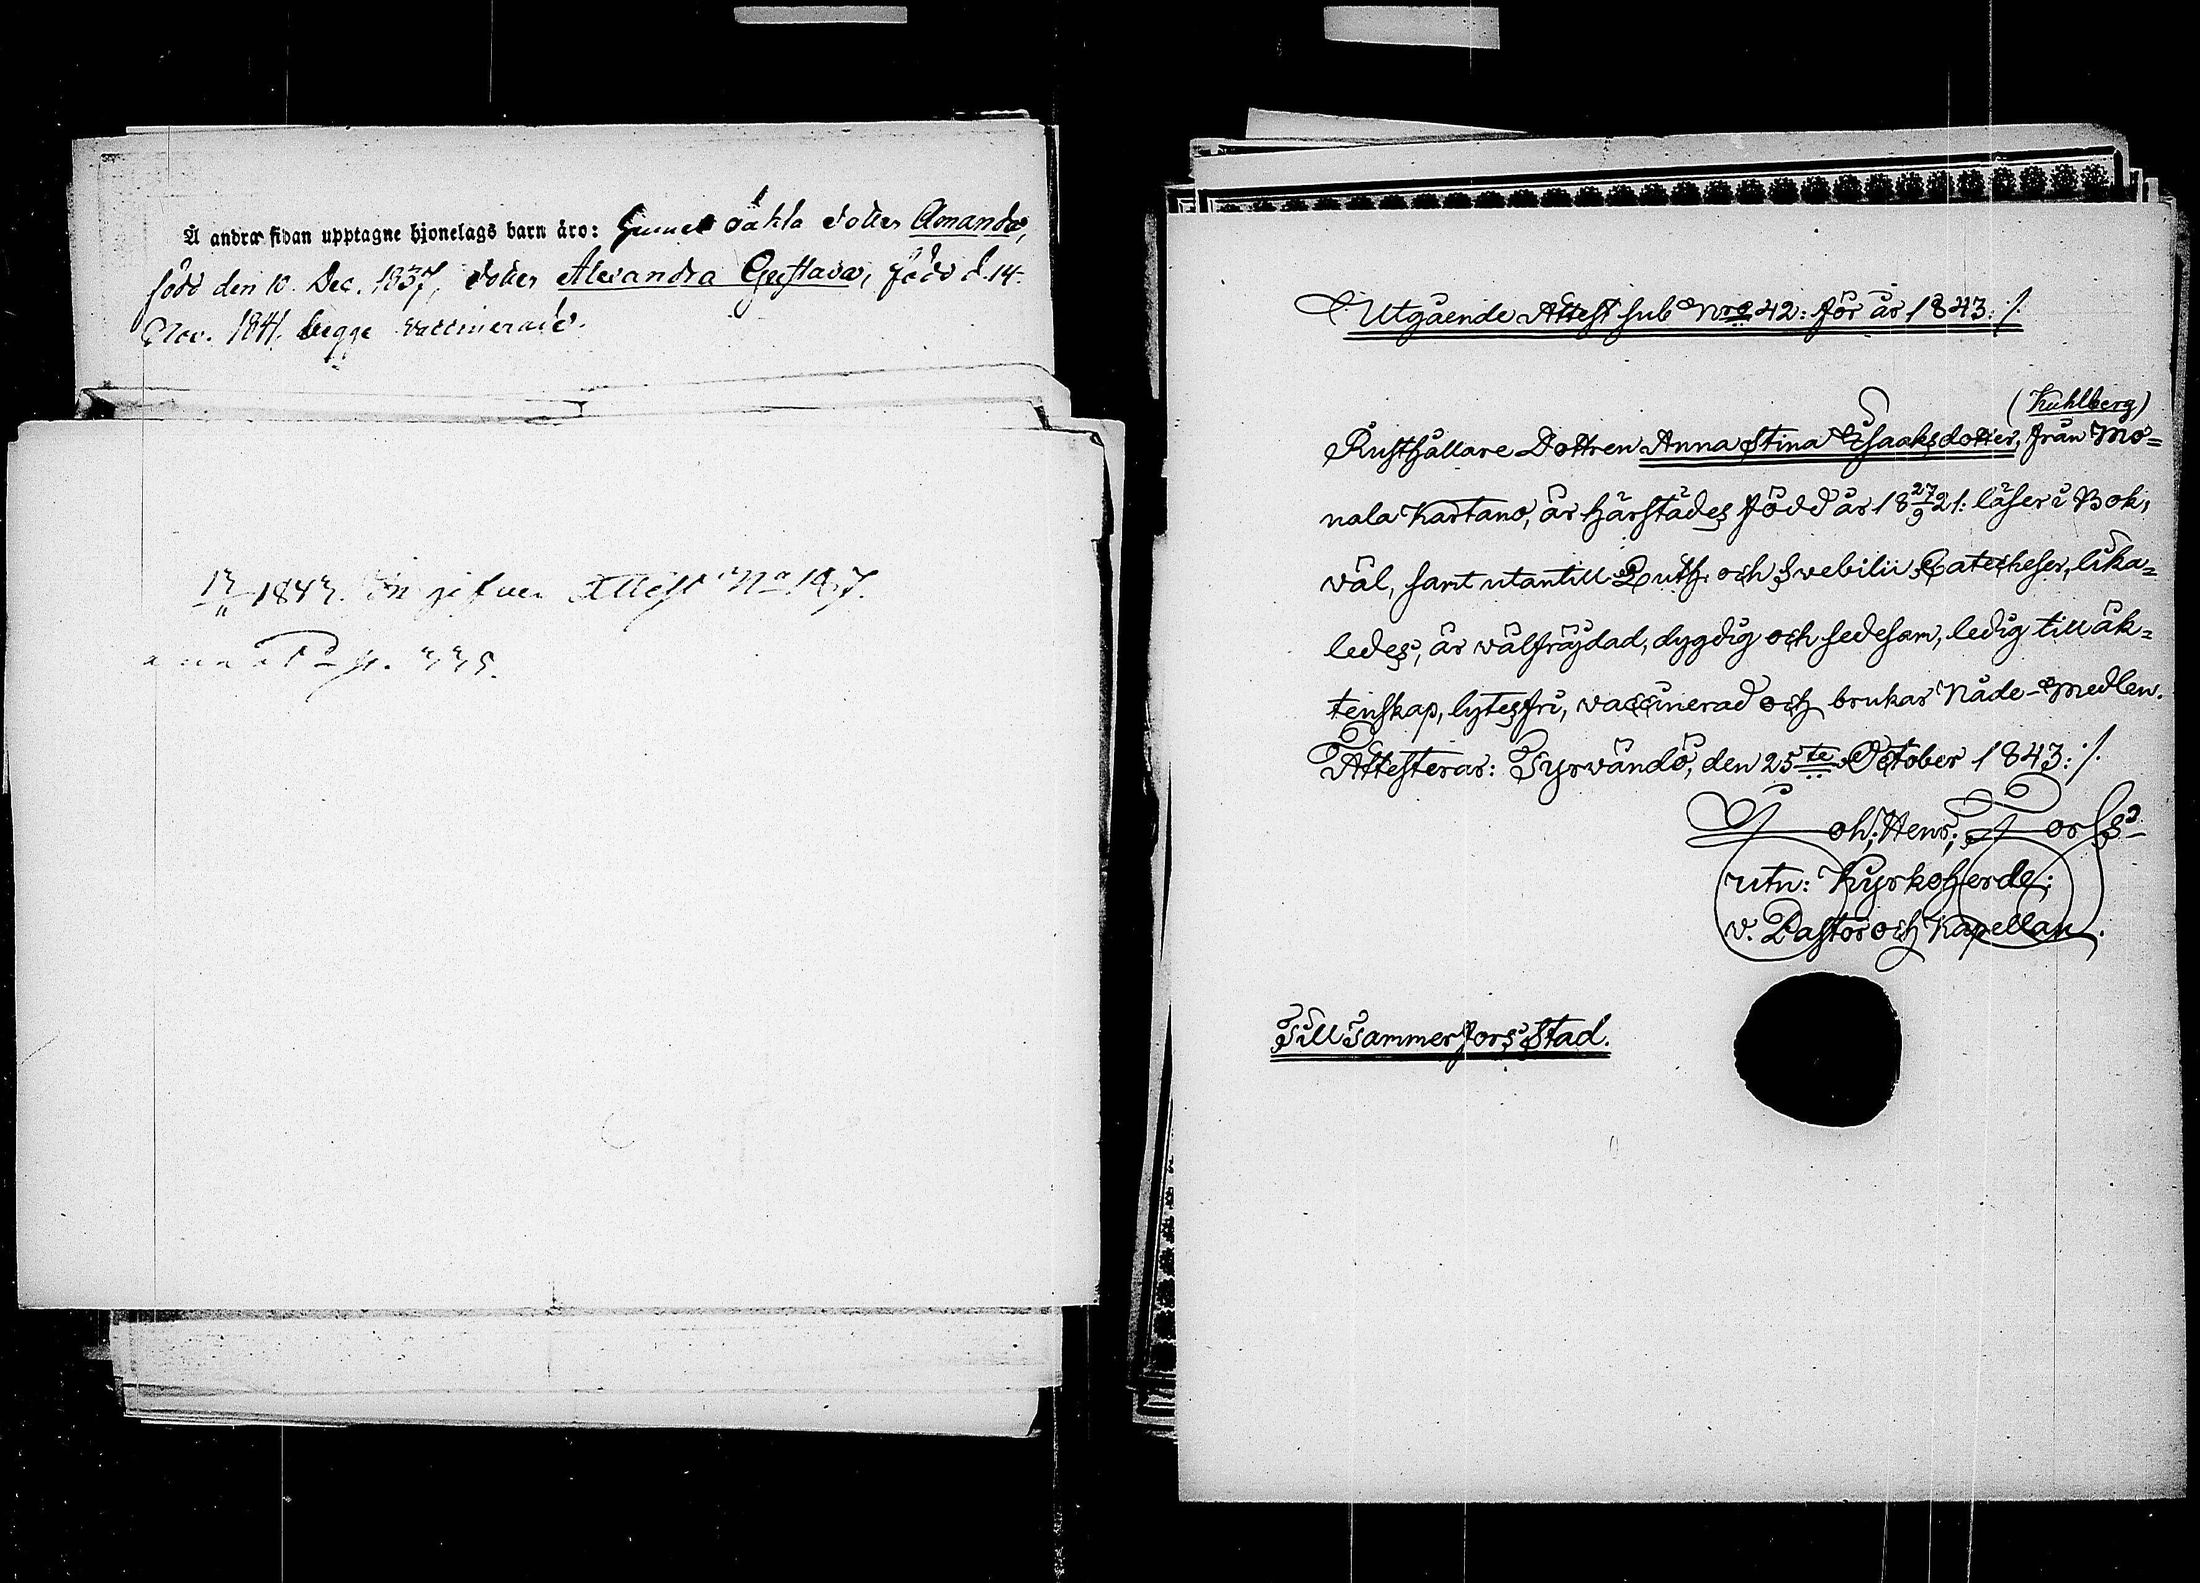 Å andra sidan upptagne hjonelags barn äro: äkta dotter Amanda,
född den 10. Dec. 1837, dotter Alexandra Gustava, född d. 14.
Nov. 1841. begge vaccinerade.
1843. Attest No 147.
335.
Utgående Attest sub Nro 42: för år 1843: /.
(Kuhlberg)
Rusthållare Dottren Anna Stina Isaaksdotter, från Mo=
nala Kartano, är härstädes född år 18 27/9 21: läser i Bok,
väl, samt utantill Luth: och Svebilii Catecheser, lika=
ledes, är välfräjdad, dygdig och sedesam, ledig till äk=
tenskap, lytesfri, vaccinerad och brukar Nåde-Medlen.
Attesterar: Tyrvändö, den 25te October 1843: /.
Joh: Henr: Forss
utn: Kyrkoherde;
v. Pastor och Kapellan.
Till Tammerfors Stad.